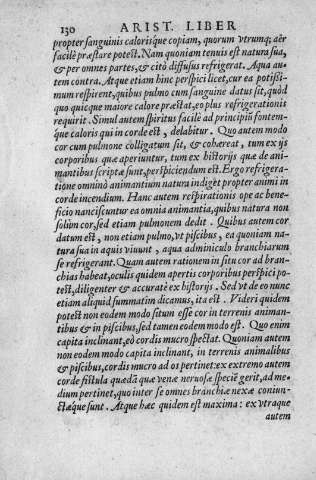 130 ARIST. LIBER
propter sanguinis calorisque copiam, quorum vtrumq; aër
facile præstare potest. Nam quoniam tenuis est natura sua,
& per omnes partes, & cito diffusus refrigerat. Aqua au-
tem contra. Atque etiam hinc perspici licet, cur ea potißi-
mum respirent, quibus pulmo cum sanguine datus sit, quòd
quo quicque maiore calore præstat, eo plus refrigerationis
requirit. Simul autem spiritus facile ad principiũ fontem-
que caloris qui in corde est, delabitur. Quo autem modo
cor cum pulmone colligatum sit, & cohæreat, tum ex ijs
corporibus quæ aperiuntur, tum ex historijs quæ de ani-
mantibus scriptæ sunt, perspiciendum est. Ergo refrigera-
tione omninò animantium natura indiget propter animi in
corde incendium. Hanc autem respirationis ope ac bene-
ficio nanciscuntur ea omnia animantia, quibus natura non
solùm cor, sed etiam pulmonem dedit. Quibus autem cor
datum est, non etiam pulmo, vt piscibus, ea quoniam na-
tura sua in aquis viuunt, aqua adminiculo branchiarum
se refrigerant. Quam autem rationem in situ cor ad bran-
chias habeat, oculis quidem apertis corporibus perspici po-
test, diligenter & accuratè ex historijs. Sed vt de eo nunc
etiam aliquid summatim dicamus, ita est. Videri quidem
potest non eodem modo situm esse cor in terrenis animan-
tibus & in piscibus, sed tamen eodem modo est. Quo enim
capita inclinant, eò cordis mucro spectat. Quoniam autem
non eodem modo capita inclinant, in terrenis animalibus
& piscibus, cordis mucro ad os pertinet: ex extremo autem
corde fistula quædã quæ venæ neruosæ speciẽ gerit, ad me-
dium pertinet, quo inter se omnes branchiæ nexæ coniun-
ctæque sunt. Atque hæc quidem est maxima: ex vtraque
autem